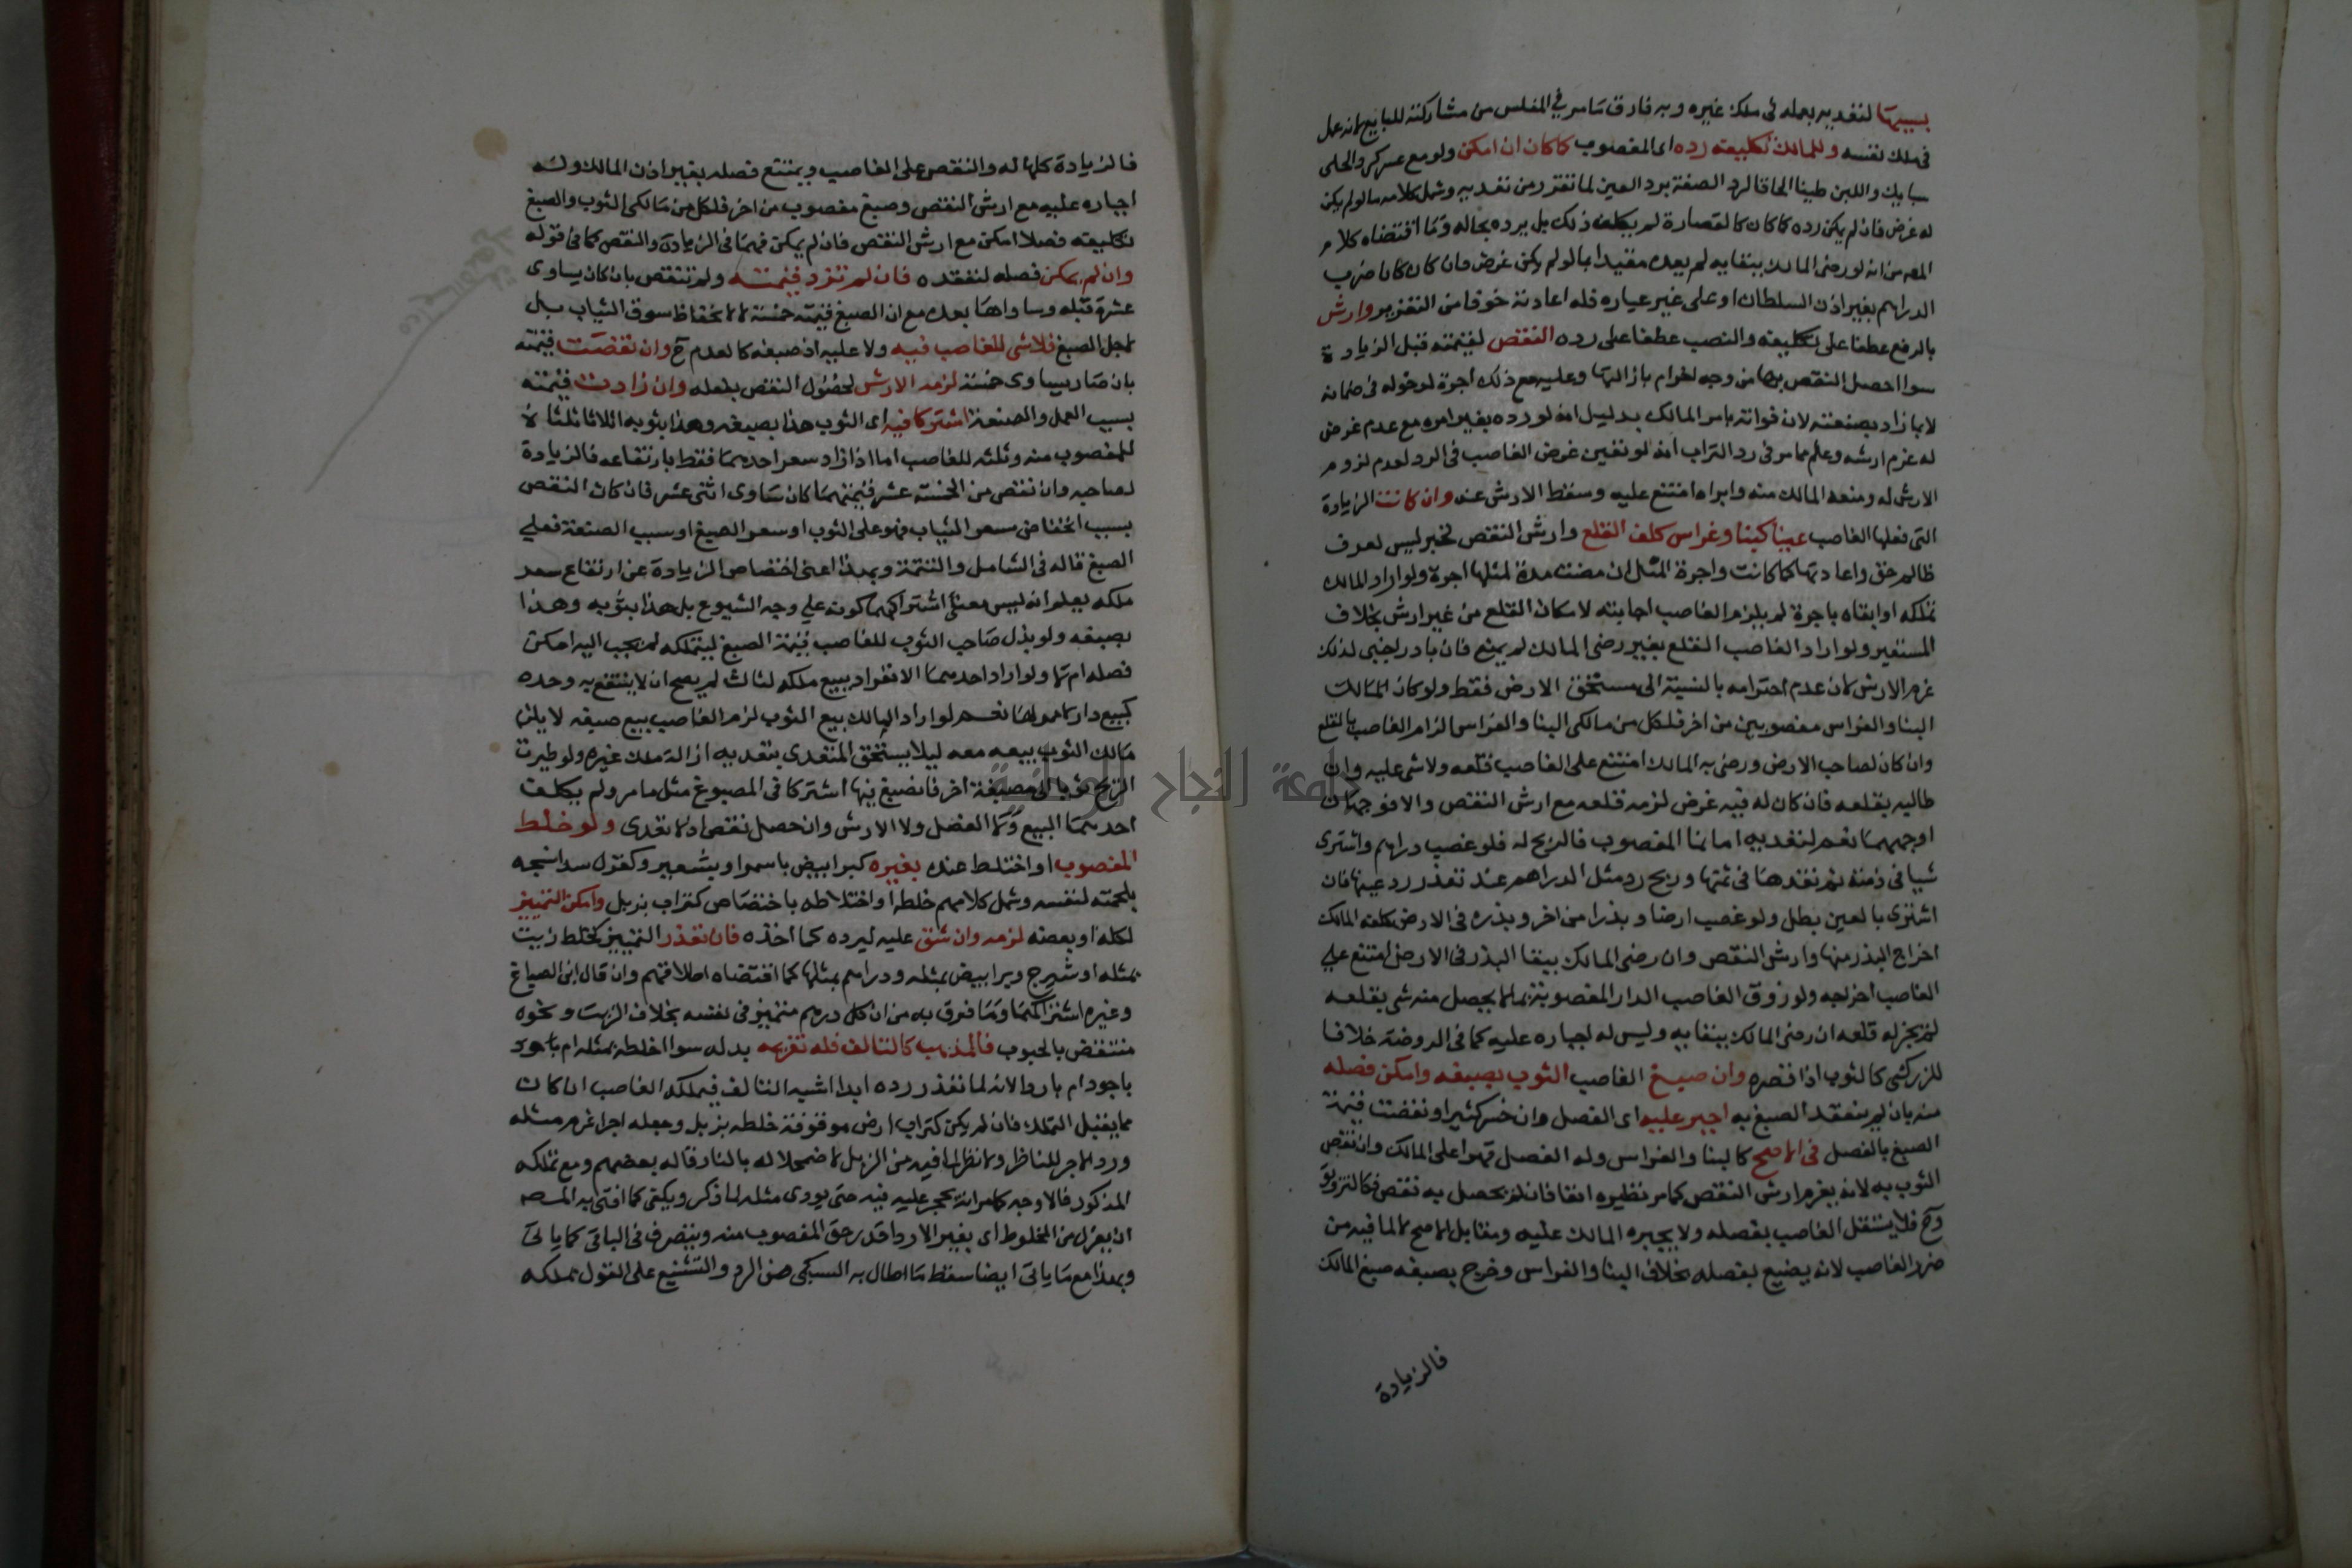 بسببها لتعديه بعمله في ملك غيره وبه فارق ما مر في المفلس من مشاركته للبايع لانه عمل
في ملك نفسه وللمالك تكليفه رده اى المغصوب كما كان ان امكن ولو مع عسر كرد الحلى
سبايك واللبن طينا الحاقا لرد الصفة برد العين لما تقرر من تعديه وشمل كلامه ما لو لم يكن
له غرض فان لم يكن رده كما كان كالقصارة لم يكلف ذلك بل يرده بحاله وما اقتضاه كلام
المص من انه لو رضى المالك ببقايه لم يعده مقيد بما لو لم يكن غرض فان كان كان ضرب
الدراهم بغير اذن السلطان او على غير عياره فله اعادته خوفا من التعزير وارش
بالرفع عطفا على تكليفه والنصب عطفا على رده النقص لقيمته قبل الزيادة
سوا احصل النقص بها من وجه اخرام بازالتها وعليه مع ذلك اجرة لدخوله في ضمانه
لا بما زاد بصنعته لان فواته بامر المالك بدليل انه لو رده بغير امره مع عدم غرض
له غرم ارشه وعلم مما مر في رد التراب انه لو تعين غرض الغاصب في الرد لعدم لزوم
الارش له ومنعه المالك منه وابراه امتنع عليه وسقط الارش عنه وان كانت الزيادة
التي فعلها الغاصب عينا كبنا وغراس كلف القلع وارش النقص لخبر ليس لعرق
ظالم حق واعادتها كما كانت واجرة المثل ان مضت مدة لمثلها اجرة ولو اراد المالك
تملكه او ابقاه باجرة لم يلزم الغاصب اجابته لامكان القلع من غير ارش بخلاف
المستعير ولو اراد الغاصب القلع بغير رضى المالك لم يمنع فان بادر اجنبى لذلك
غرم الارش لان عدم احترامه بالنسبة الى مستحق الارض فقط ولو كان المالك
البنا والغراس مغصوبين من اخر فلكل من مالكى البنا والغراس الزام الغاصب بالقلع
وان كان لصاحب الارض ورضى به المالك امتنع على الغاصب قلعه ولا شى عليه وان
طالبه بقلعه فان كان له فيه غرض لزمه قلعه مع ارش النقص والا فوجهان
اوجههما نعم لتعديه اما نما المغصوب فالربح له فلو غصب دراهم واشترى
شيا في ذمته ثم نقدها في ثمنها وربح رد مثل الدراهم عند تعذر رد عينها فان
اشترى بالعين بطل ولو غصب ارضا وبذرا من اخر وبذره في الارض كلفه المالك
اخراج البذر منها وارش النقص وان رضى المالك ببقا البذر في الارض امتنع على
الغاصب اخراجه ولو زوق الغاصب الدار المغصوبة بما لا يحصل منه شى بقلعه
لم يجز له قلعه ان رضى المالك ببقايه وليس له اجباره عليه كما في الروضة خلافا
للزركشى كالثوب اذا قصره وان صبغ الغاصب الثوب بصبغه وامكن فصله
منه بان لم ينعقد الصبغ به اجبر عليه اى الفصل وان خسر كثيرا ونقصت قيمة
الصبغ بالفصل في الاصح كالبنا والغراس وله الفصل قهرا على المالك وان نقص
الثوب به لانه يغرم ارش النقص كما مر نظيره انفا فان لم يحصل به نقص فكالتزويق
وح فلا يستقل الغاصب بفصله ولا يجبره المالك عليه ومقابل الاصح لا لما فيه من
ضرر الغاصب لانه يضيع بفصله بخلاف البنا والغراس وخرج بصبغه صبغ المالك
فالزيادة
فالزيادة كلها له والنقص على الغاصب ويمتنع فصله بغير اذن المالك وله
اجباره عليه مع ارش النقص وصبغ مغصوب من اخر فلكل من مالكى الثوب والصبغ
تكليفه فصلا امكن مع ارش النقص فان لم يمكن فهما في الزيادة والنقص كما في قوله
وان لم يمكن فصله لتعقده فان لم تزد قيمته ولم تنقص بان كان يساوى
عشرة قبله وساواها بعده مع ان الصبغ قيمته خمسة لا لانخفاظ سوق الثياب بل
لاجل الصبغ فلا شى للغاصب فيه ولا عليه اذ صبغه كالعدم ح وان نقصت قيمته
بان صار يساوى خمسة لزمه الارش لحصول النقص بفعله وان زادت قيمته
بسبب العمل والصنعة اشتركا فيه اى الثوب هذا بصبغه وهذا بثوبه اثلاثا ثلثاه
للمغصوب منه وثلثه للغاصب اما اذا زاد سعر احدهما فقط بارتفاعه فالزيادة
لصاحبه وان نقص من الخمسة عشر قيمتهما كان ساوى اثنى عشر فان كان النقص
بسبب انخفاض سعر الثياب فهو على الثوب او سعر الصبغ او سبب الصنعة فعلى
الصبغ قاله في الشامل والتتمة وبهذا اعنى اختصاص الزيادة عن ارتفاع سعر
ملكه يعلم انه ليس معنى اشتراكهما كونه على وجه الشيوع بل هذا بثوبه وهذا
بصبغه ولو بذل صاحب الثوب للغاصب قيمة الصبغ ليتملكه لم يجب اليه امكن
فصله ام لا ولو اراد احدهما الانفراد ببيع ملكه لثالث لم يصح اذ لا ينتفع به وحده
كبيع دار لا ممر لها نعم لو اراد المالك بيع الثوب لزم الغاصب بيع صبغه لا يلزم
مالك الثوب بيعه معه ليلا يستحق المتعدى بتعديه ازالة ملك غيره ولو طيرت
الريح ثوبا الى مصبغة اخر فانصبغ فيها اشتركا في المصبوغ مثل ما مر ولم يكلف
احدهما البيع ولا الفصل ولا الارش وان حصل نقص اذ لا تعدى ولو خلط
المغصوب او اختلط عنده بغيره كبر ابيض باسمر او بشعير وكغزل سدا نسجه
بلحمته لنفسه وشمل كلامهم خلطه او اختلاطه باختصاص كتراب بزبل وامكن التمييز
لكله او بعضه لزمه وان شق عليه ليرده كما اخذه فان تعذر التمييز كخلط زيت
بمثله او شيرج وبر ابيض بمثله ودراهم بمثلها كما اقتضاه اطلاقهم وان قال ابن الصباغ
وغيره اشتراكهما وما فرق به من ان كل درهم متميز في نفسه بخلاف الزيت ونحوه
منتقض بالحبوب فالمذهب كالتالف فله تغريمه بدله سوا اخلطه بمثله ام باجود
باجود ام باردا لانه لما تعذر رده ابدا اشبه التالف فيملكه الغاصب ان كان
مما يقبل التملك فان لم يكن كتراب ارض موقوفة خلطه بزبل وجعله اجرا غرم مثله
ورد الاجر للناظر ولا نظر لما فيه من الزبل لاضمحلاله بالنار قاله بعضهم ومع تملكه
المذكور فالاوجه كما مر انه يحجر عليه فيه حتى يودى مثله لما ذكر ويكفى كما افتى به المص
ان يعزل من المخلوط اى بغير الاردا قدر حق المغصوب منه ويتصرف في الباقى كما ياتى
وبهذا مع ما ياتى ايضا سقط ما اطال به السبكى من الرد والتشنيع على القول بملكه
جامعة النجاح الوطنية